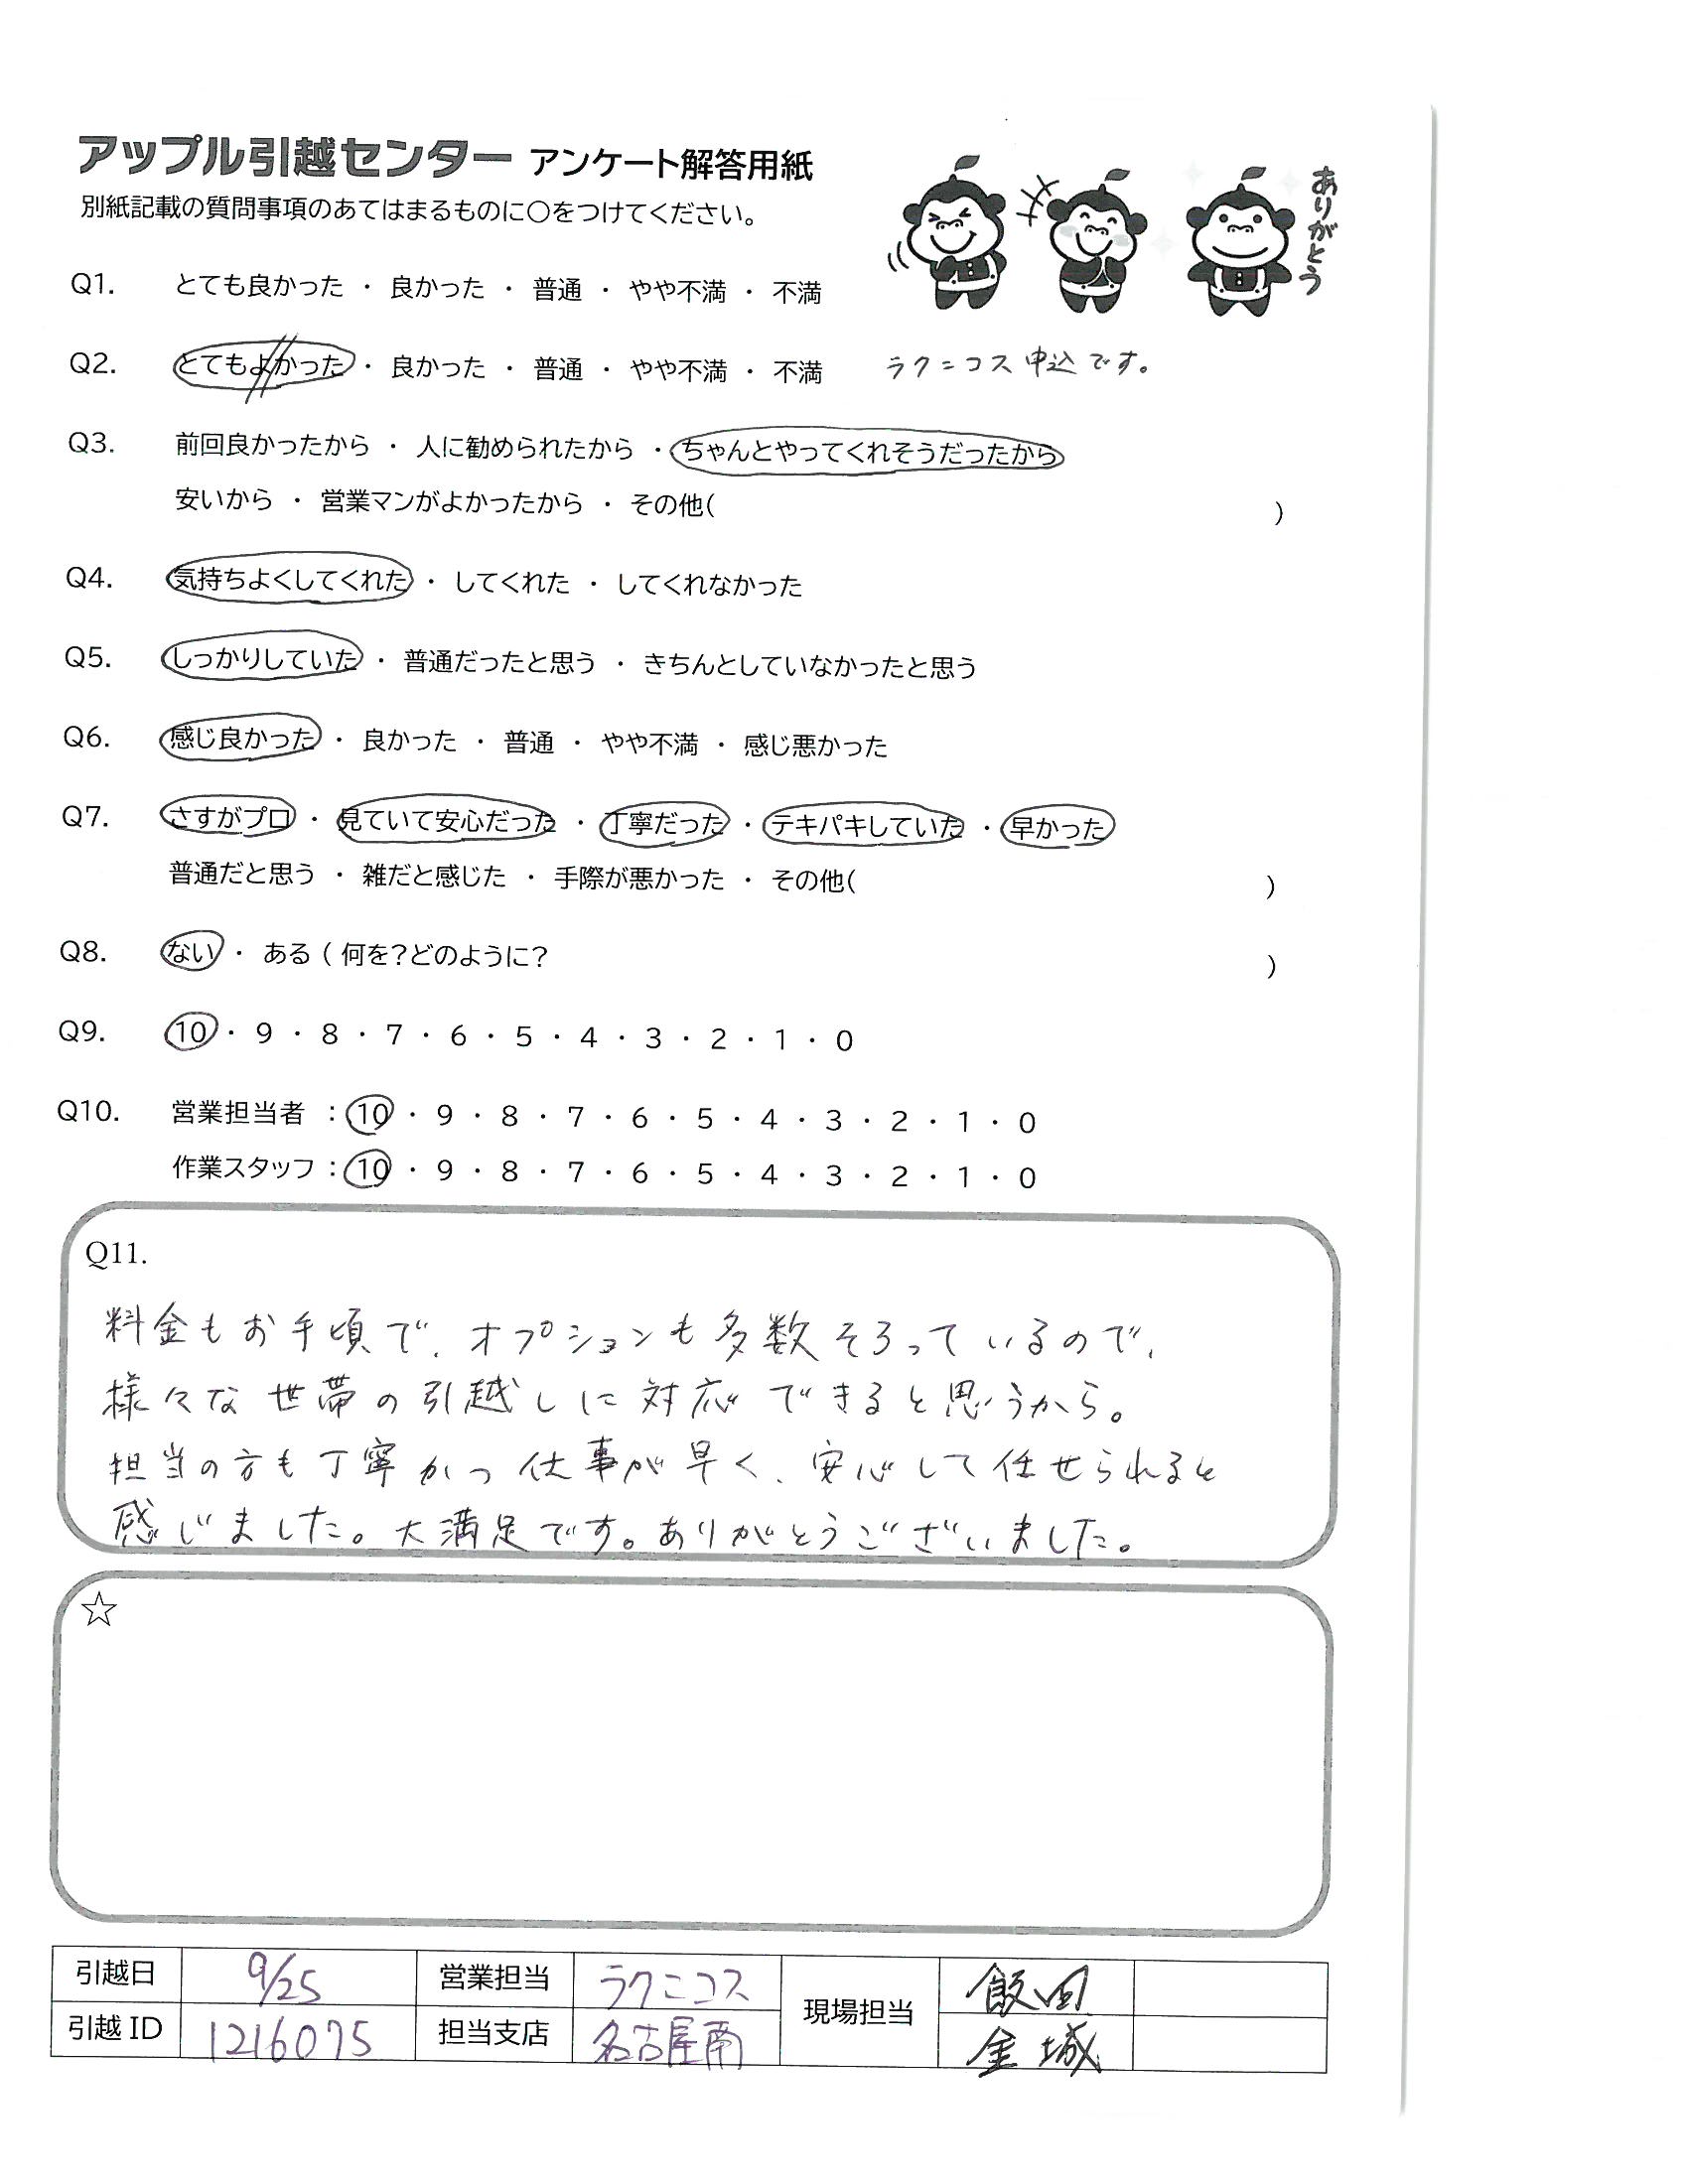 アップル引越センター アンケート解答用紙
別紙記載の質問事項のあてはまるものに○をつけてください。
ありがとう
Q1. とても良かった ・ 良かった ・ 普通 ・ やや不満 ・ 不満
Q2. とてもよかった ・ 良かった ・ 普通 ・ やや不満 ・ 不満 ラクニコス申込です。
Q3. 前回良かったから ・ 人に勧められたから ・ ちゃんとやってくれそうだったから
安いから ・ 営業マンがよかったから ・ その他( )
Q4. 気持ちよくしてくれた ・ してくれた ・ してくれなかった
Q5. しっかりしていた ・ 普通だったと思う ・ きちんとしていなかったと思う
Q6. 感じ良かった ・ 良かった ・ 普通 ・ やや不満 ・ 感じ悪かった
Q7. さすがプロ ・ 見ていて安心だった ・ 丁寧だった ・ テキパキしていた ・ 早かった
普通だと思う ・ 雑だと感じた ・ 手際が悪かった ・ その他( )
Q8. ない ・ ある ( 何を?どのように? )
Q9. 10 ・ 9 ・ 8 ・ 7 ・ 6 ・ 5 ・ 4 ・ 3 ・ 2 ・ 1 ・ 0
Q10. 営業担当者 : 10 ・ 9 ・ 8 ・ 7 ・ 6 ・ 5 ・ 4 ・ 3 ・ 2 ・ 1 ・ 0
作業スタッフ : 10 ・ 9 ・ 8 ・ 7 ・ 6 ・ 5 ・ 4 ・ 3 ・ 2 ・ 1 ・ 0
Q11.
料金もお手頃で、オプションも多数そろっているので、
様々な世帯の引越しに対応できると思うから。
担当の方も丁寧かつ仕事が早く、安心して任せられると
感じました。大満足です。ありがとうございました。
☆
引越日 9/25 営業担当 ラクニコス 現場担当 飯田
引越ID 1216075 担当支店 名古屋南 金城